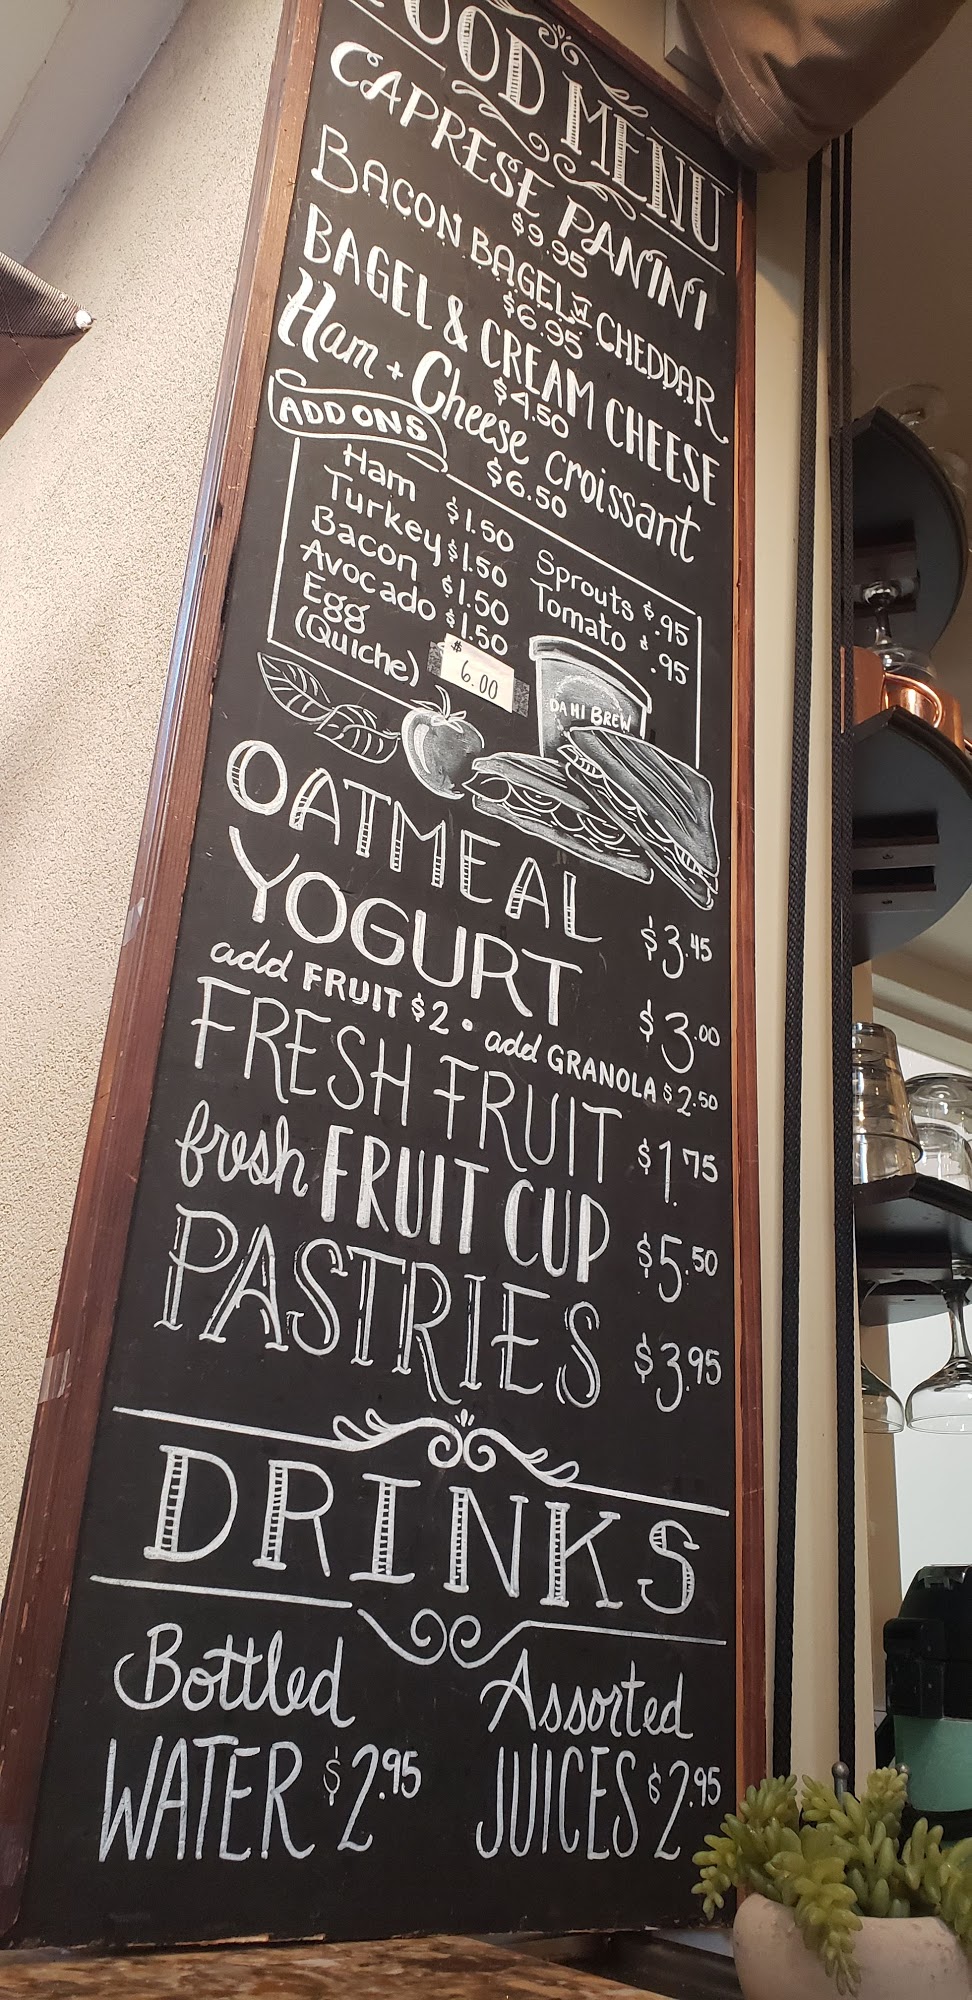 FOOD MENU
CAPRESE PANINI
$9.95
BACON BAGEL W CHEDDAR
$6.95
BAGEL & CREAM CHEESE
$4.50
Ham + Cheese croissant
$6.50
ADD ONS
Ham $1.50
Turkey $1.50
Bacon $1.50
Avocado $1.50
Egg
(Quiche) $6.00
Sprouts $.95
Tomato $.95
DAHI BREW
OATMEAL $3.45
YOGURT $3.00
add FRUIT $2 • add GRANOLA $2.50
FRESH FRUIT $1.75
fresh FRUIT CUP $5.50
PASTRIES $3.95
DRINKS
Bottled
WATER $2.95
Assorted
JUICES $2.95